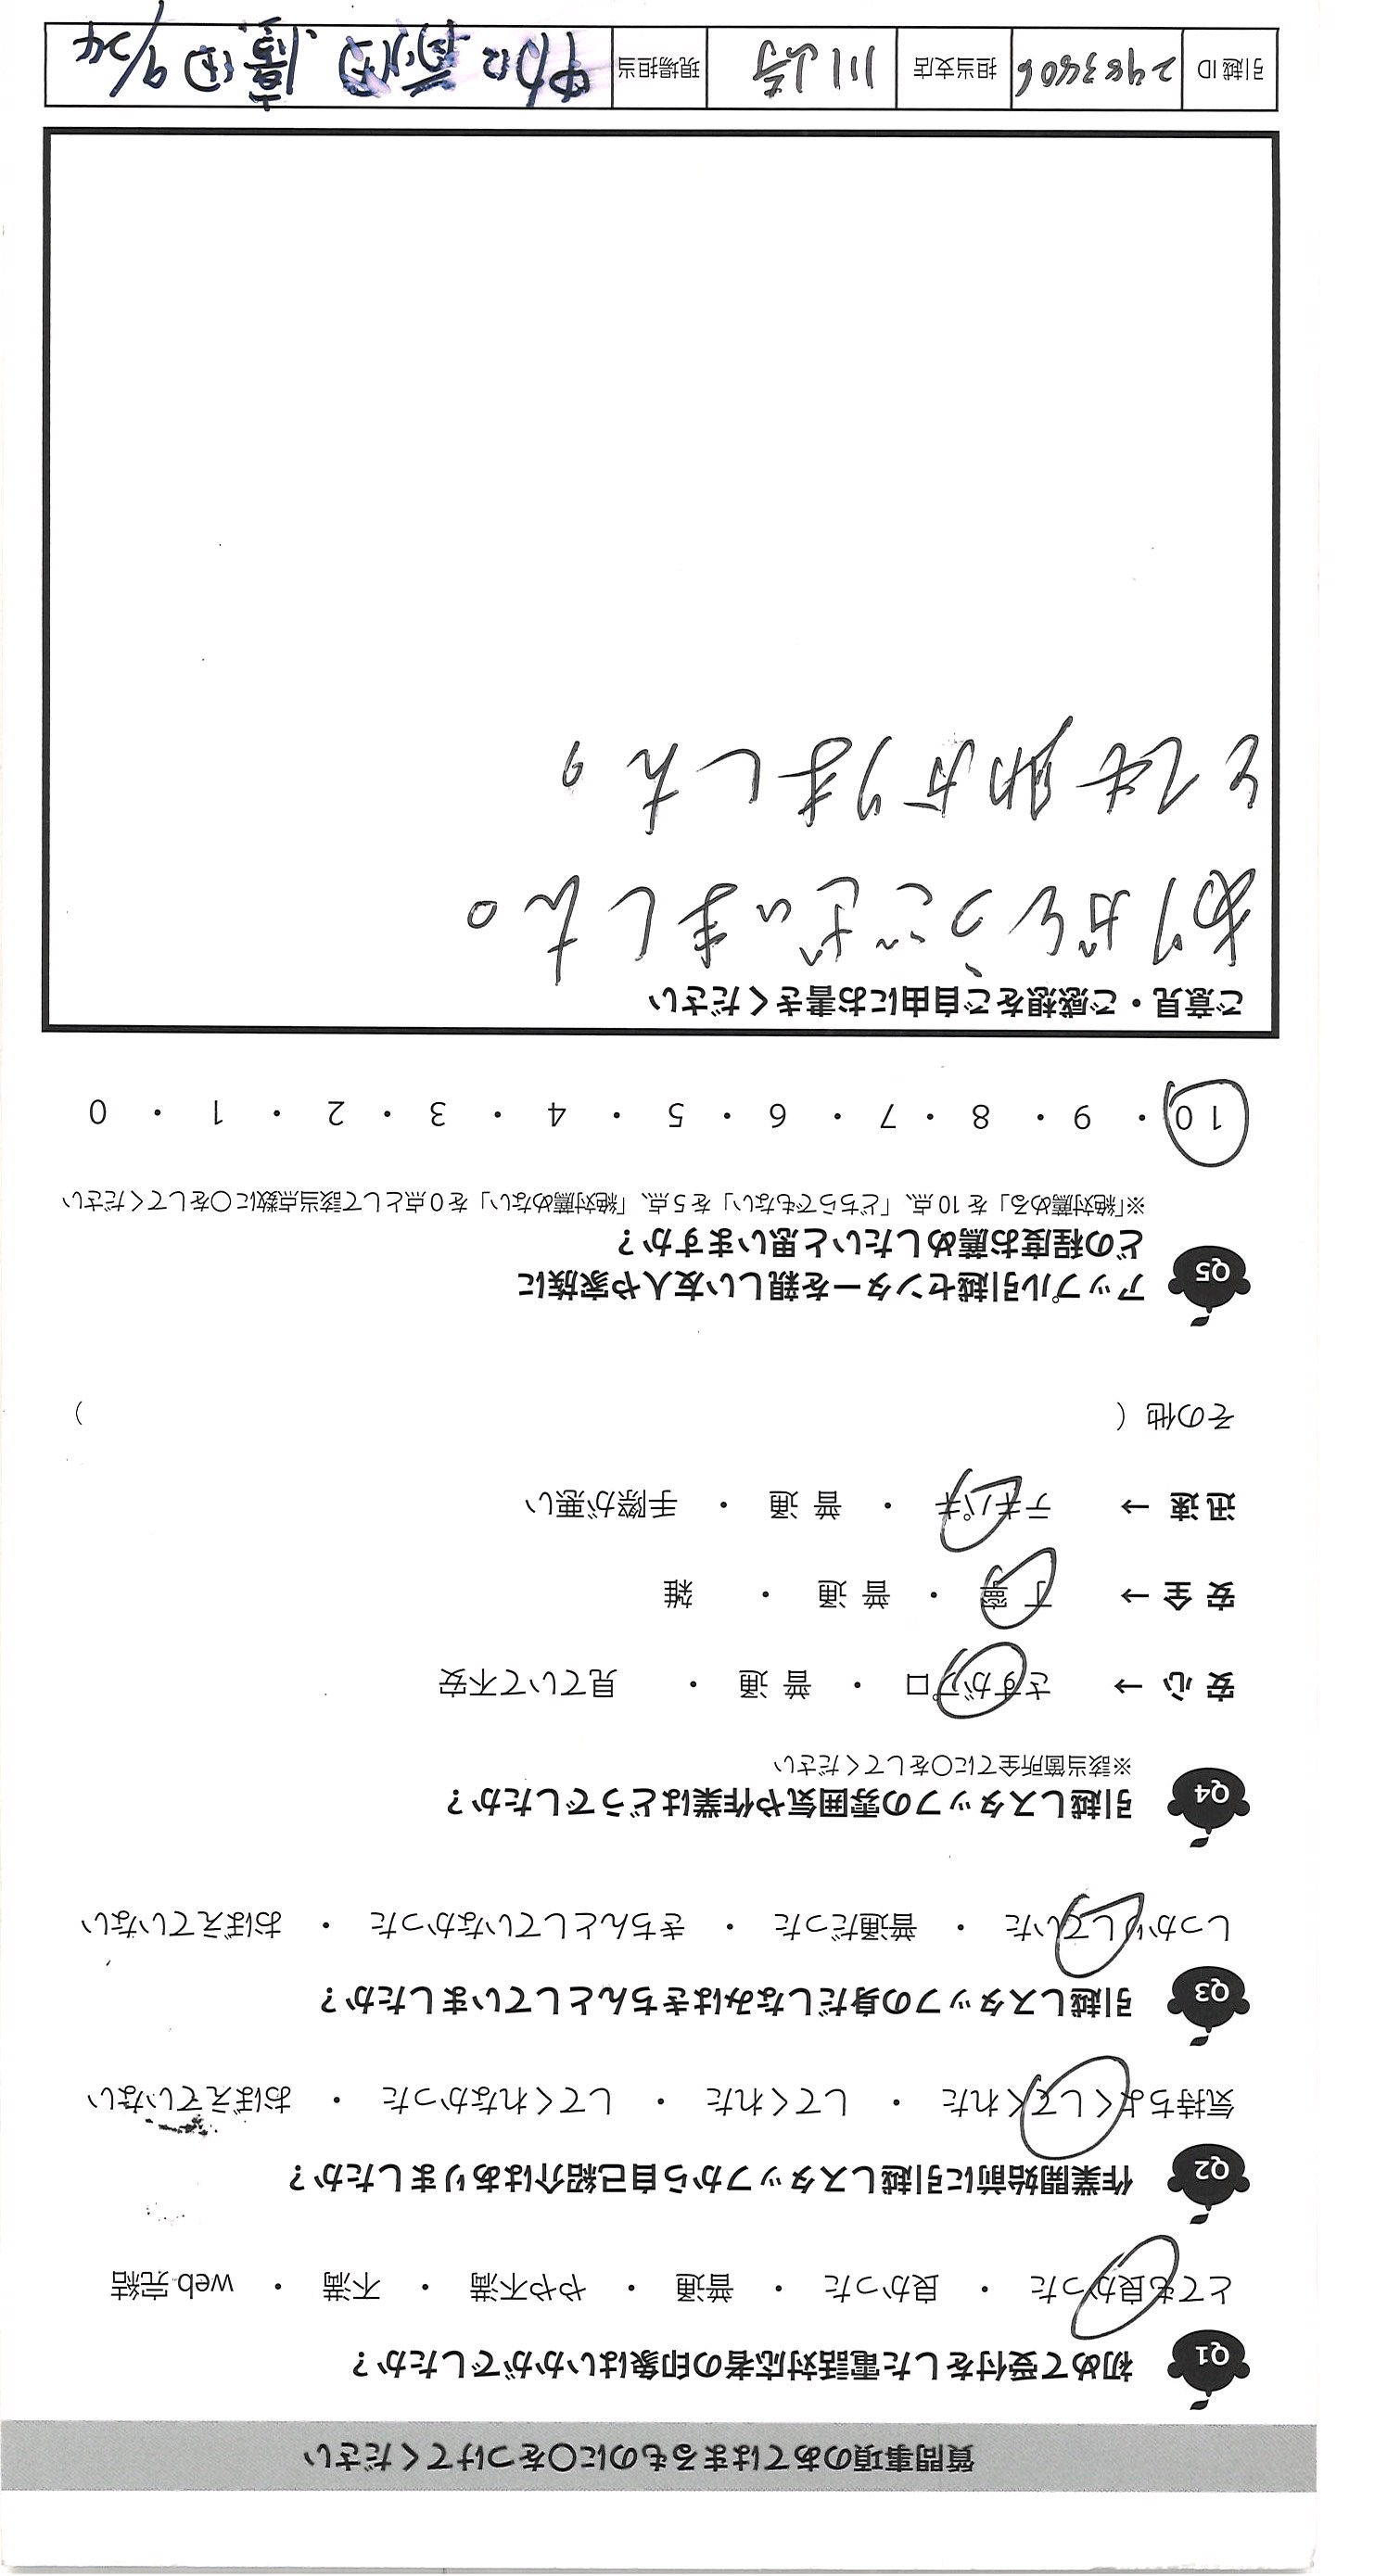 質問事項のあてはまるものに○をつけてください
Q1 初めて受付をした電話対応者の印象はいかがでしたか？
とても良かった ・ 良かった ・ 普通 ・ やや不満 ・ 不満 ・ web完結
Q2 作業開始前に引越しスタッフから自己紹介はありましたか？
気持ちよくしてくれた ・ してくれた ・ してくれなかった ・ おぼえていない
Q3 引越しスタッフの身だしなみはきちんとしていましたか？
しっかりしていた ・ 普通だった ・ きちんとしていなかった ・ おぼえていない
Q4 引越しスタッフの雰囲気や作業はどうでしたか？
※該当箇所全てに○をしてください
安心 → さすがプロ ・ 普通 ・ 見ていて不安
安全 → 丁寧 ・ 普通 ・ 雑
迅速 → テキパキ ・ 普通 ・ 手際が悪い
その他（ ）
Q5 アップル引越センターを親しい友人や家族に
どの程度お薦めしたいと思いますか？
※「絶対薦める」を10点、「どちらでもない」を5点、「絶対薦めない」を0点として該当点数に○をしてください
10 ・ 9 ・ 8 ・ 7 ・ 6 ・ 5 ・ 4 ・ 3 ・ 2 ・ 1 ・ 0
ご意見・ご感想をご自由にお書きください
ありがとうございました。
とても助かりました。
引越ID 2983406 担当支店 川崎 現場担当 9/24